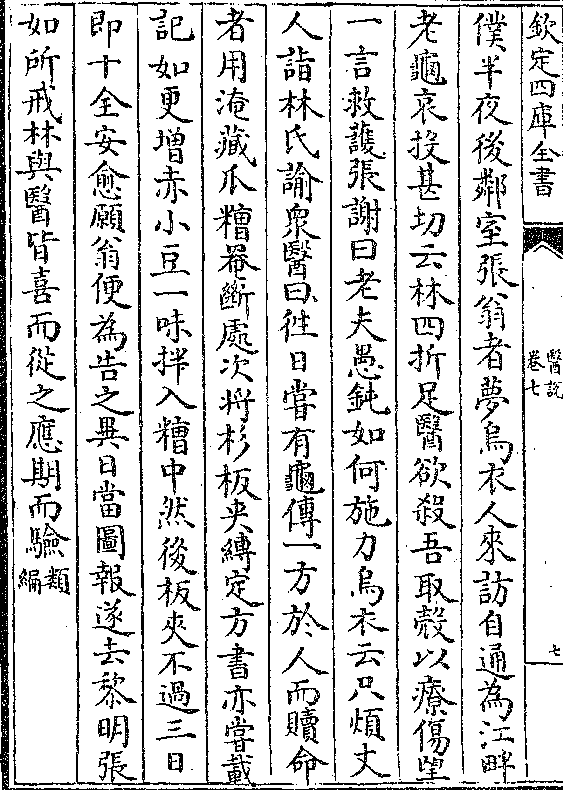 欽定四庫全書
醫說
卷七
七
僕半夜後鄰室張翁者夢烏衣人來訪自通為江畔
老龜哀投甚切云林四折足醫欲殺吾取殼以療傷望
一言救護張謝曰老夫愚鈍如何施力烏衣云只煩丈
人詣林氏諭衆醫曰徃日嘗有龜傳一方於人而贖命
者用淹藏瓜糟罨斷處次將杉板夾縛定方書亦嘗載
記如更增赤小豆一味拌入糟中然後板夾不過三日
即十全安愈願翁便為告之異日當圖報遂去黎明張
如所戒林與醫皆喜而從之應期而驗類編